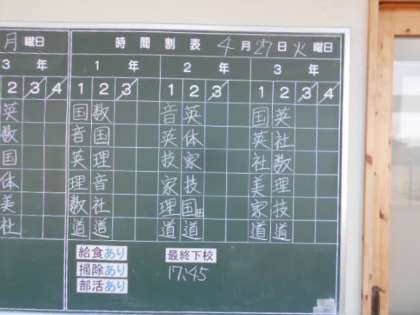 月 曜日 時間割表 4月27日火曜日
3 年 1 年 2 年 3 年
2 3 4 1 2 3 1 2 3 1 2 3 4
英 国 数 音 英 国 英
数 音 国 英 体 英 社
国 英 理 技 家 社 数
体 理 音 家 技 美 理
美 数 社 理 国 家 技
社 道 道 道 道 道 道
給食あり 最終下校
掃除あり 17:45
部活あり